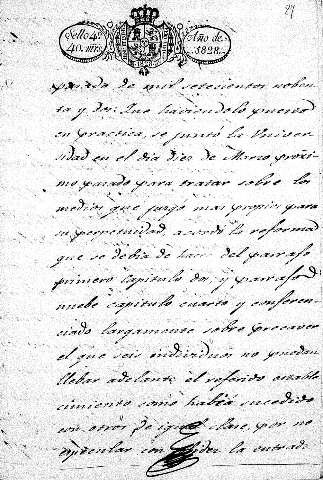 Sello 4º
40. mrs.
Año de
1828.
pasada de mil setecientos noben-
ta y dos: Que haciendolo puesto
en practica, se juntó la Univer-
sidad en el dia diez de Marzo próxi-
mo pasado para tratar sobre los
medios que juzgó mas propios para
su perpetuidad, acordó la reforma
que se debia de hacer del parrafo
primero capitulo dos, y parrafo
nuebe capitulo cuarto y conferen-
ciado largamente sobre precaver
el que seis individuos no puedan
llebar adelante el referido estable-
cimiento como habia sucedido
con otros de igual clase, por no
con la entrada